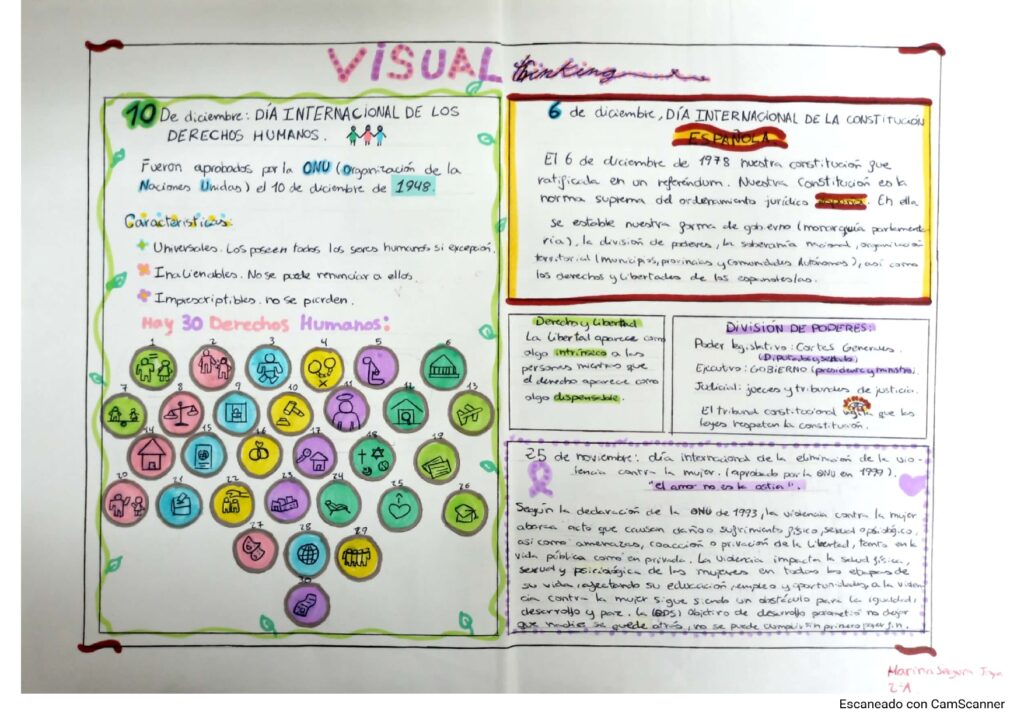 VISUAL thinking
10 De diciembre: DÍA INTERNACIONAL DE LOS
DERECHOS HUMANOS.
Fueron aprobados por la ONU (Organización de la
Naciones Unidas) el 10 de diciembre de 1948.
Características:
Universales. Los poseen todos los seres humanos si excepción.
Inalienables. No se puede renunciar a ellos.
Imprescriptibles. no se pierden.
Hay 30 Derechos Humanos:
1 2 3 4 5 6
7 8 9 10 11 12 13
14 15 16 17 18 19
20 21 22 23 24 25 26
27 28 29
30
6 de diciembre, DÍA INTERNACIONAL DE LA CONSTITUCIÓN
ESPAÑOLA.
El 6 de diciembre de 1978 nuestra constitución que
ratificada en un referéndum. Nuestra Constitución es la
norma suprema del ordenamiento jurídico. En ella
se estable nuestra forma de gobierno (monarquía parlamenta-
ría), la división de poderes, la soberanía nacional, organización
territorial (municipios, provincias y Comunidades Autónomas), así como
los derechos y libertades de los españoles/as.
Derecho y Libertad
La libertad aparece como
algo intrínseco a las
personas mientras que
el derecho aparece como
algo dispensable.
DIVISIÓN DE PODERES:
Poder legislativo: Cortes Generales.
(Diputados y senado)
Ejecutivo: GOBIERNO (presidente y ministros)
Judicial: jueces y tribunales de justicia.
El tribunal constitucional vigila que las
leyes respetan la constitución.
25 de noviembre: día internacional de la eliminación de la vio-
lencia contra la mujer. (aprobado por la ONU en 1999).
"El amor no es la ostia".
Según la declaración de la ONU de 1993, la violencia contra la mujer
abarca acto que causen daño o sufrimiento físico, sexual o psicológico,
así como amenazas, coacción o privación de la libertad, tanto en la
vida pública como en privada. La violencia impacta la salud física,
sexual y psicológica de las mujeres en todas las etapas de
su vida, afectando su educación, empleo y oportunidades, a la violen-
cia contra la mujer sigue siendo un obstáculo para la igualdad,
desarrollo y paz. la (ODS) Objetivo de desarrollo no dejar
que nadie se quede atrás, no se puede cumplir sin primero poner fin.
Marina Segura
2ºA
Escaneado con CamScanner